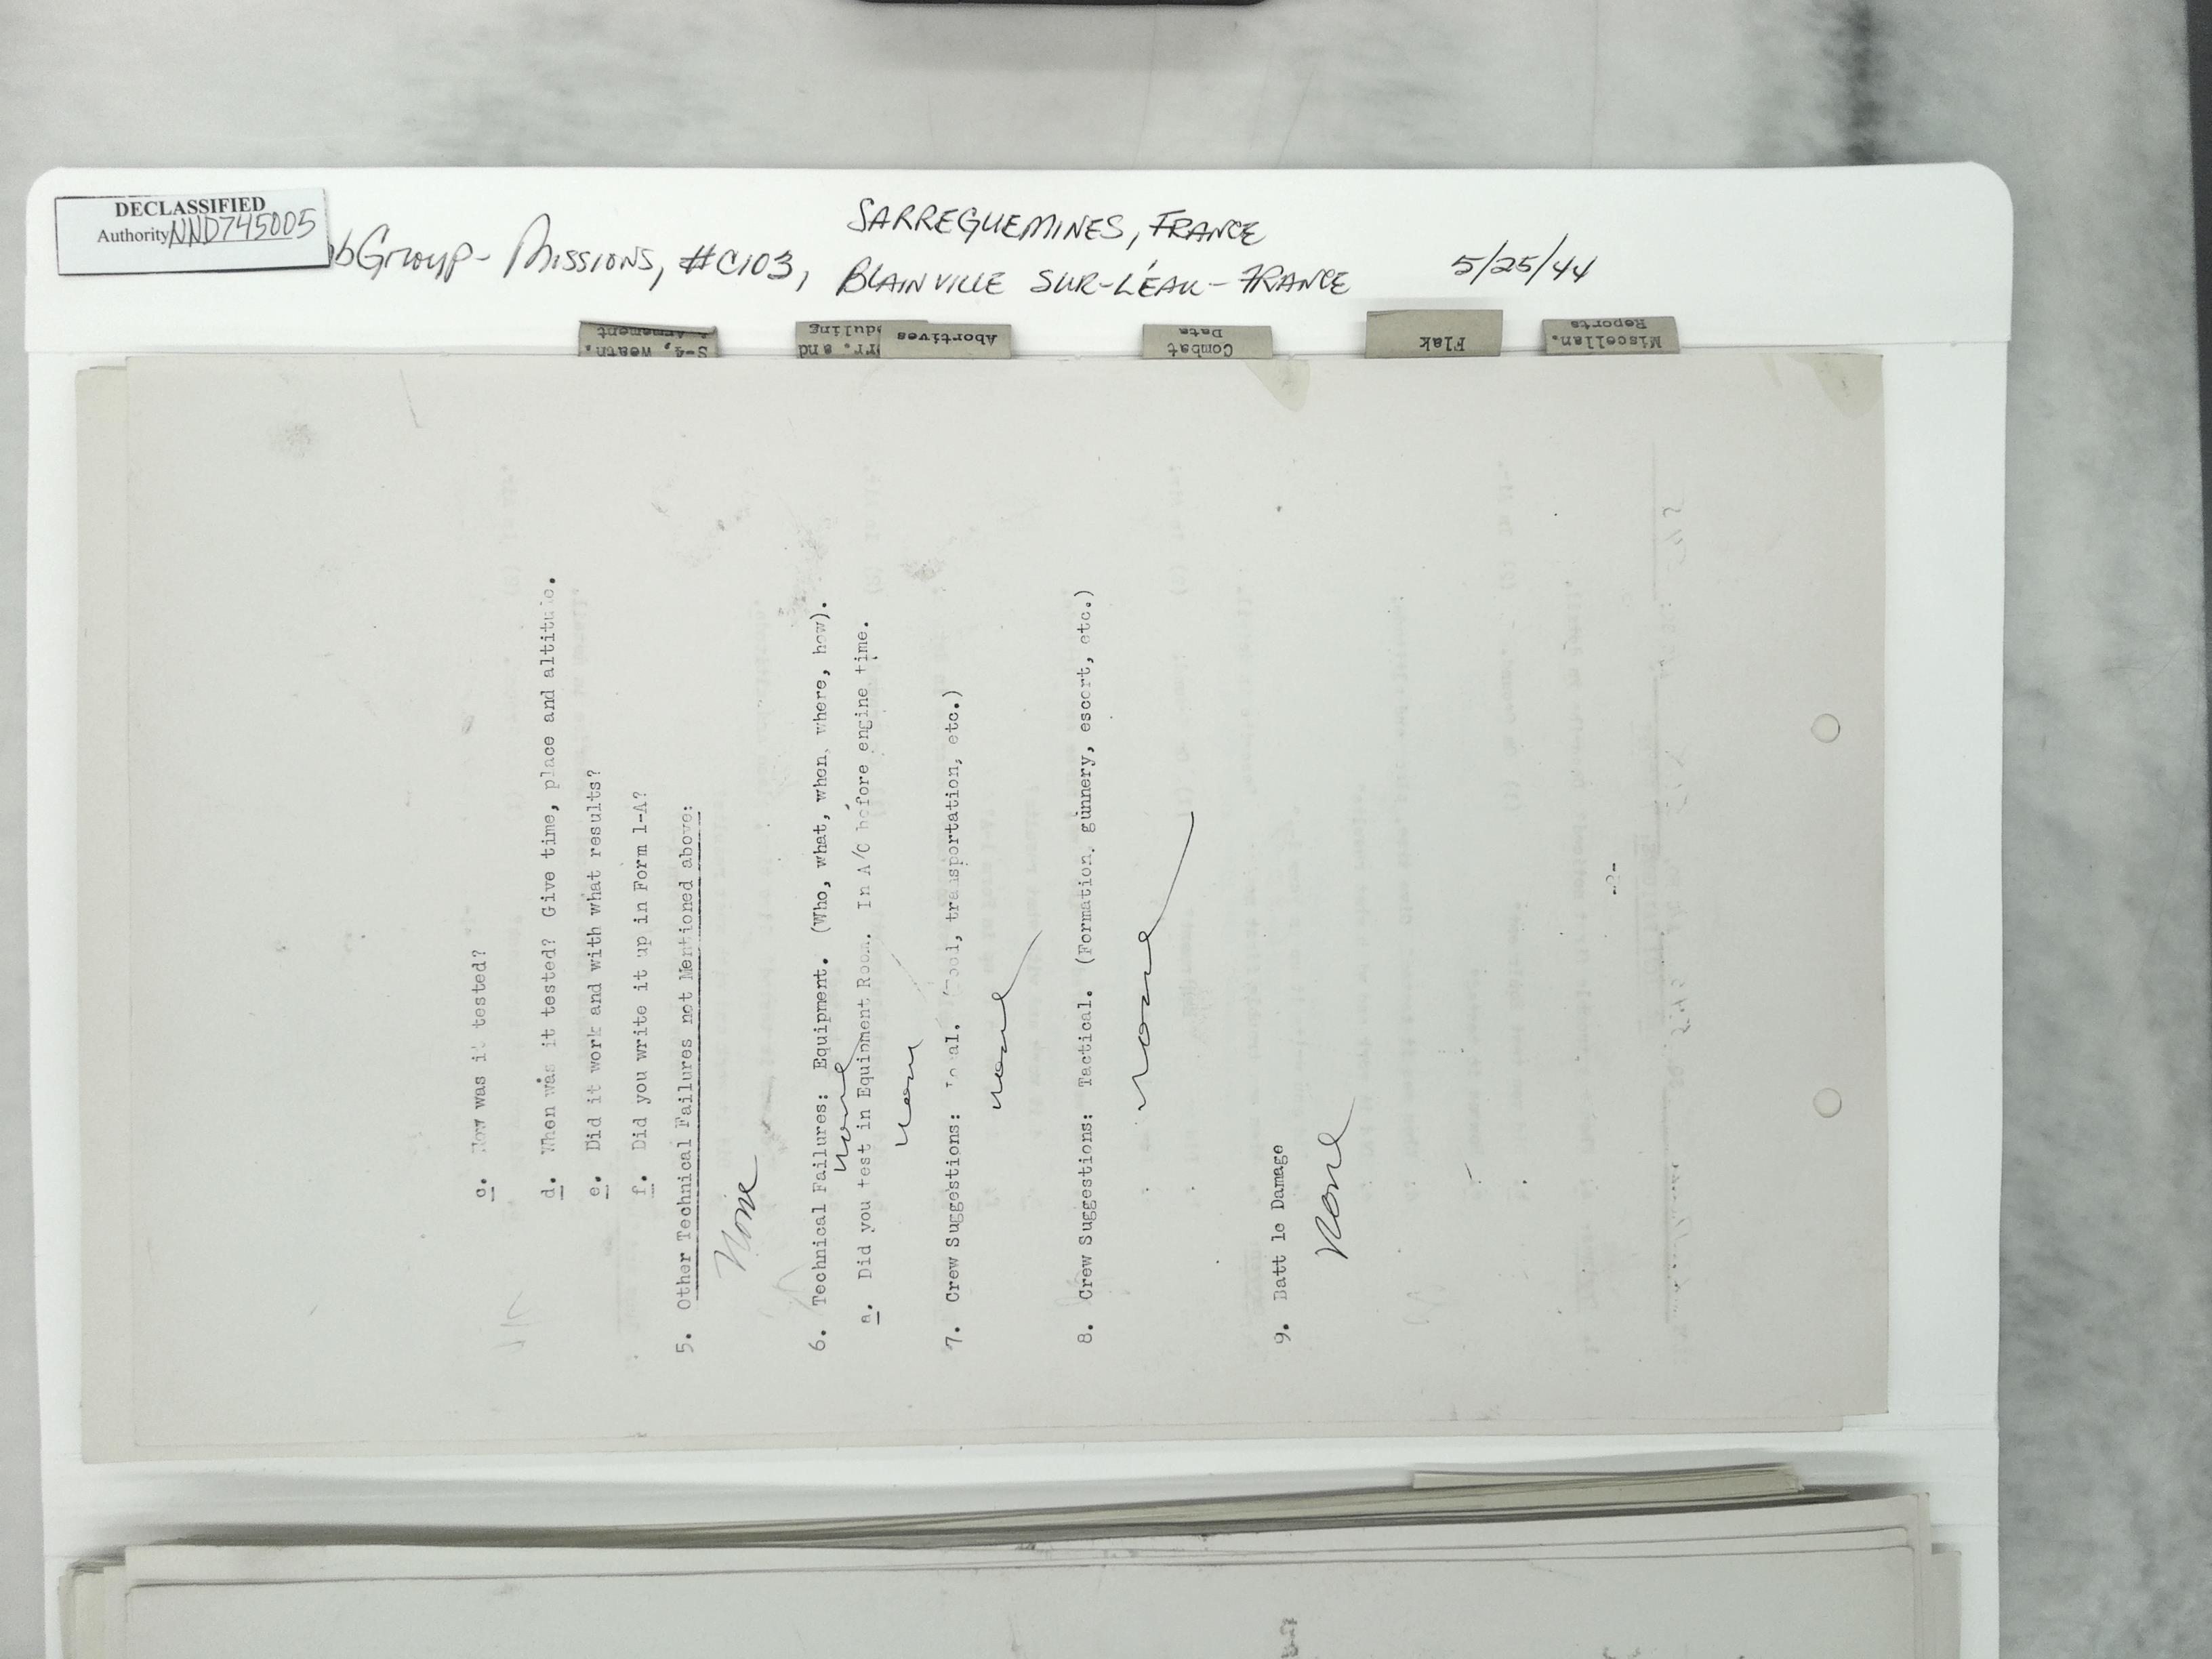 DECLASSIFIED
Authority NND745005
bGroup - Missions, #C103,
SARREGUEMINES, FRANCE
BLAINVILLE SUR-L'EAU - FRANCE
5/25/44
S-4, Weath.
Armament
rr. and
duling
Abortives
Combat
Data
Flak
Miscellan.
Reports
c. How was it tested?
d. When was it tested? Give time, place and altitude.
e. Did it work and with what results?
f. Did you write it up in Form 1-A?
5. Other Technical Failures not Mentioned above:
None
6. Technical Failures: Equipment. (Who, what, when, where, how).
none
a. Did you test in Equipment Room. In A/C before engine time.
none
7. Crew Suggestions: (Food, transportation, etc.)
none
8. Crew Suggestions: Tactical. (Formation, gunnery, escort, etc.)
none
9. Batt le Damage
None
-2-